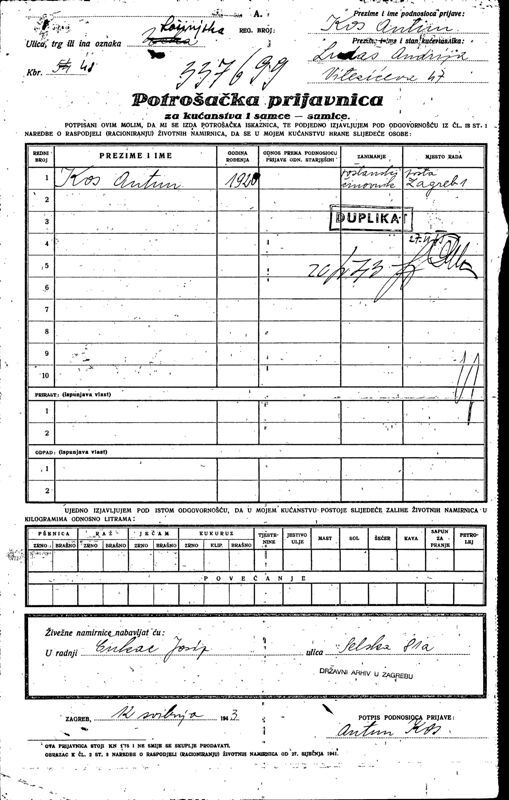 A.
Ulica, trg ili ina oznaka
REG. BROJ:
Prezime i ime podnosioca prijave:
Kos Antun
Kbr. 41
337699
Prezime, ime i stan kućevlasnika:
Lukas Andrija
47
Potrošačka prijavnica
za kućanstva i samce — samice.
POTPISANI OVIM MOLIM, DA MI SE IZDA POTROŠAČKA ISKAZNICA, TE PODJEDNO IZJAVLJUJEM POD ODGOVORNOŠĆU IZ ČL. 18 ST. 1
NAREDBE O RASPODJELI (RACIONIRANJU) ŽIVOTNIH NAMIRNICA, DA SE U MOJEM KUĆANSTVU HRANE SLIJEDEĆE OSOBE:
REDNI BROJ PREZIME I IME GODINA ROĐENJA ODNOS PREMA PODNOSIOCU PRIJAVE ODN. STARJEŠINI ZANIMANJE MJESTO RADA
1 Kos Antun 1920 činovnik pošta Zagreb 1
2
3 DUPLIKAT
4
5
6
7
8
9
10
PRIRAST: (ispunjava vlast)
1
2
ODPAD: (ispunjava vlast)
1
2
UJEDNO IZJAVLJUJEM POD ISTOM ODGOVORNOŠĆU, DA U MOJEM KUĆANSTVU POSTOJE SLIJEDEĆE ZALIHE ŽIVOTNIH NAMIRNICA U
KILOGRAMIMA ODNOSNO LITRAMA:
PŠENICA RAŽ JEČAM KUKURUZ TJESTENINE JESTIVO ULJE MAST SOL ŠEĆER KAVA SAPUN ZA PRANJE PETROLEJ
ZRNO BRAŠNO ZRNO BRAŠNO ZRNO BRAŠNO ZRNO KLIP. BRAŠNO
POVEĆANJE
Živežne namirnice nabavljat ću:
U radnji Cukac Josip ulica Selska 81a
DRŽAVNI ARHIV U ZAGREBU
ZAGREB, 12 svibnja 1943
POTPIS PODNOSIOCA PRIJAVE:
Antun Kos
OVA PRIJAVNICA STOJI KN 1.75 I NE SMIJE SE SKUPLJE PRODAVATI.
OBRAZAC K ČL. 2 ST. 3 NAREDBE O RASPODJELI (RACIONIRANJU) ŽIVOTNIH NAMIRNICA OD 27. SIJEČNJA 1941.